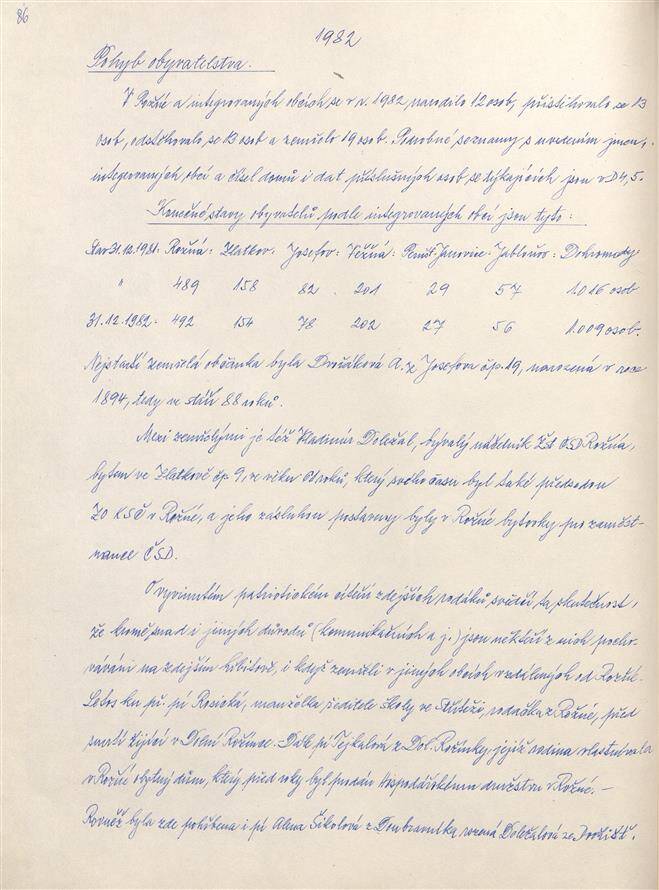 86
1982
Pohyb obyvatelstva.
V Rožné a integrovaných obcích se v r. 1982 narodilo 12 osob, přistěhovalo se 13
osob, odstěhovalo se 13 osob a zemřelo 19 osob. Podrobné seznamy s uvedením jmen,
integrovaných obcí a čísel domů i dat příslušných osob se týkajících jsou v D 4, 5.
Konečné stavy obyvatelů podle integrovaných obcí jsou tyto:
Stav 31.12.1981: Rožná: Zlatkov: Josefov: Věžná: Janovice: Jabloňov: Dohromady
" 489 158 82 201 29 57 1.016 osob
31.12.1982: 492 154 78 202 27 56 1.009 osob.
Nejstarší zemřelá občanka byla Dvořáková A. z Josefova čp. 19, narozená v roce
1894, tedy ve stáří 88 roků.
Mezi zemřelými je též Vladimír Doležal, bývalý náčelník žst ČSD Rožná,
bytem ve Zlatkově čp 9, ve věku roků, který svého času byl také předsedou
ZO KSČ v Rožné, a jeho zásluhou postaveny byly v Rožné bytovky pro zaměst-
nance ČSD.
O vyvinutém patriotickém cítění zdejších rodáků svědčí ta skutečnost,
že kromě snad i jiných důvodů (komunikačních a j.) jsou někteří z nich pocho-
váváni na zdejším hřbitově, i když zemřeli v jiných obcích vzdálených od Rožné.
Letos ku př. pí Rosická, manželka ředitele školy ve rodačka z Rožné, před
smrtí žijící v Dolní Rožínce. Dále pí Tejkalová z Dol. Rožínky, jejíž rodina vlastnila
v Rožné obytný dům, který před roky byl prodán Hospodářskému družstvu v Rožné. –
Rovněž byla zde pohřbena i pí Alena Sikolová z Doubravníka, rozená Doležalová ze